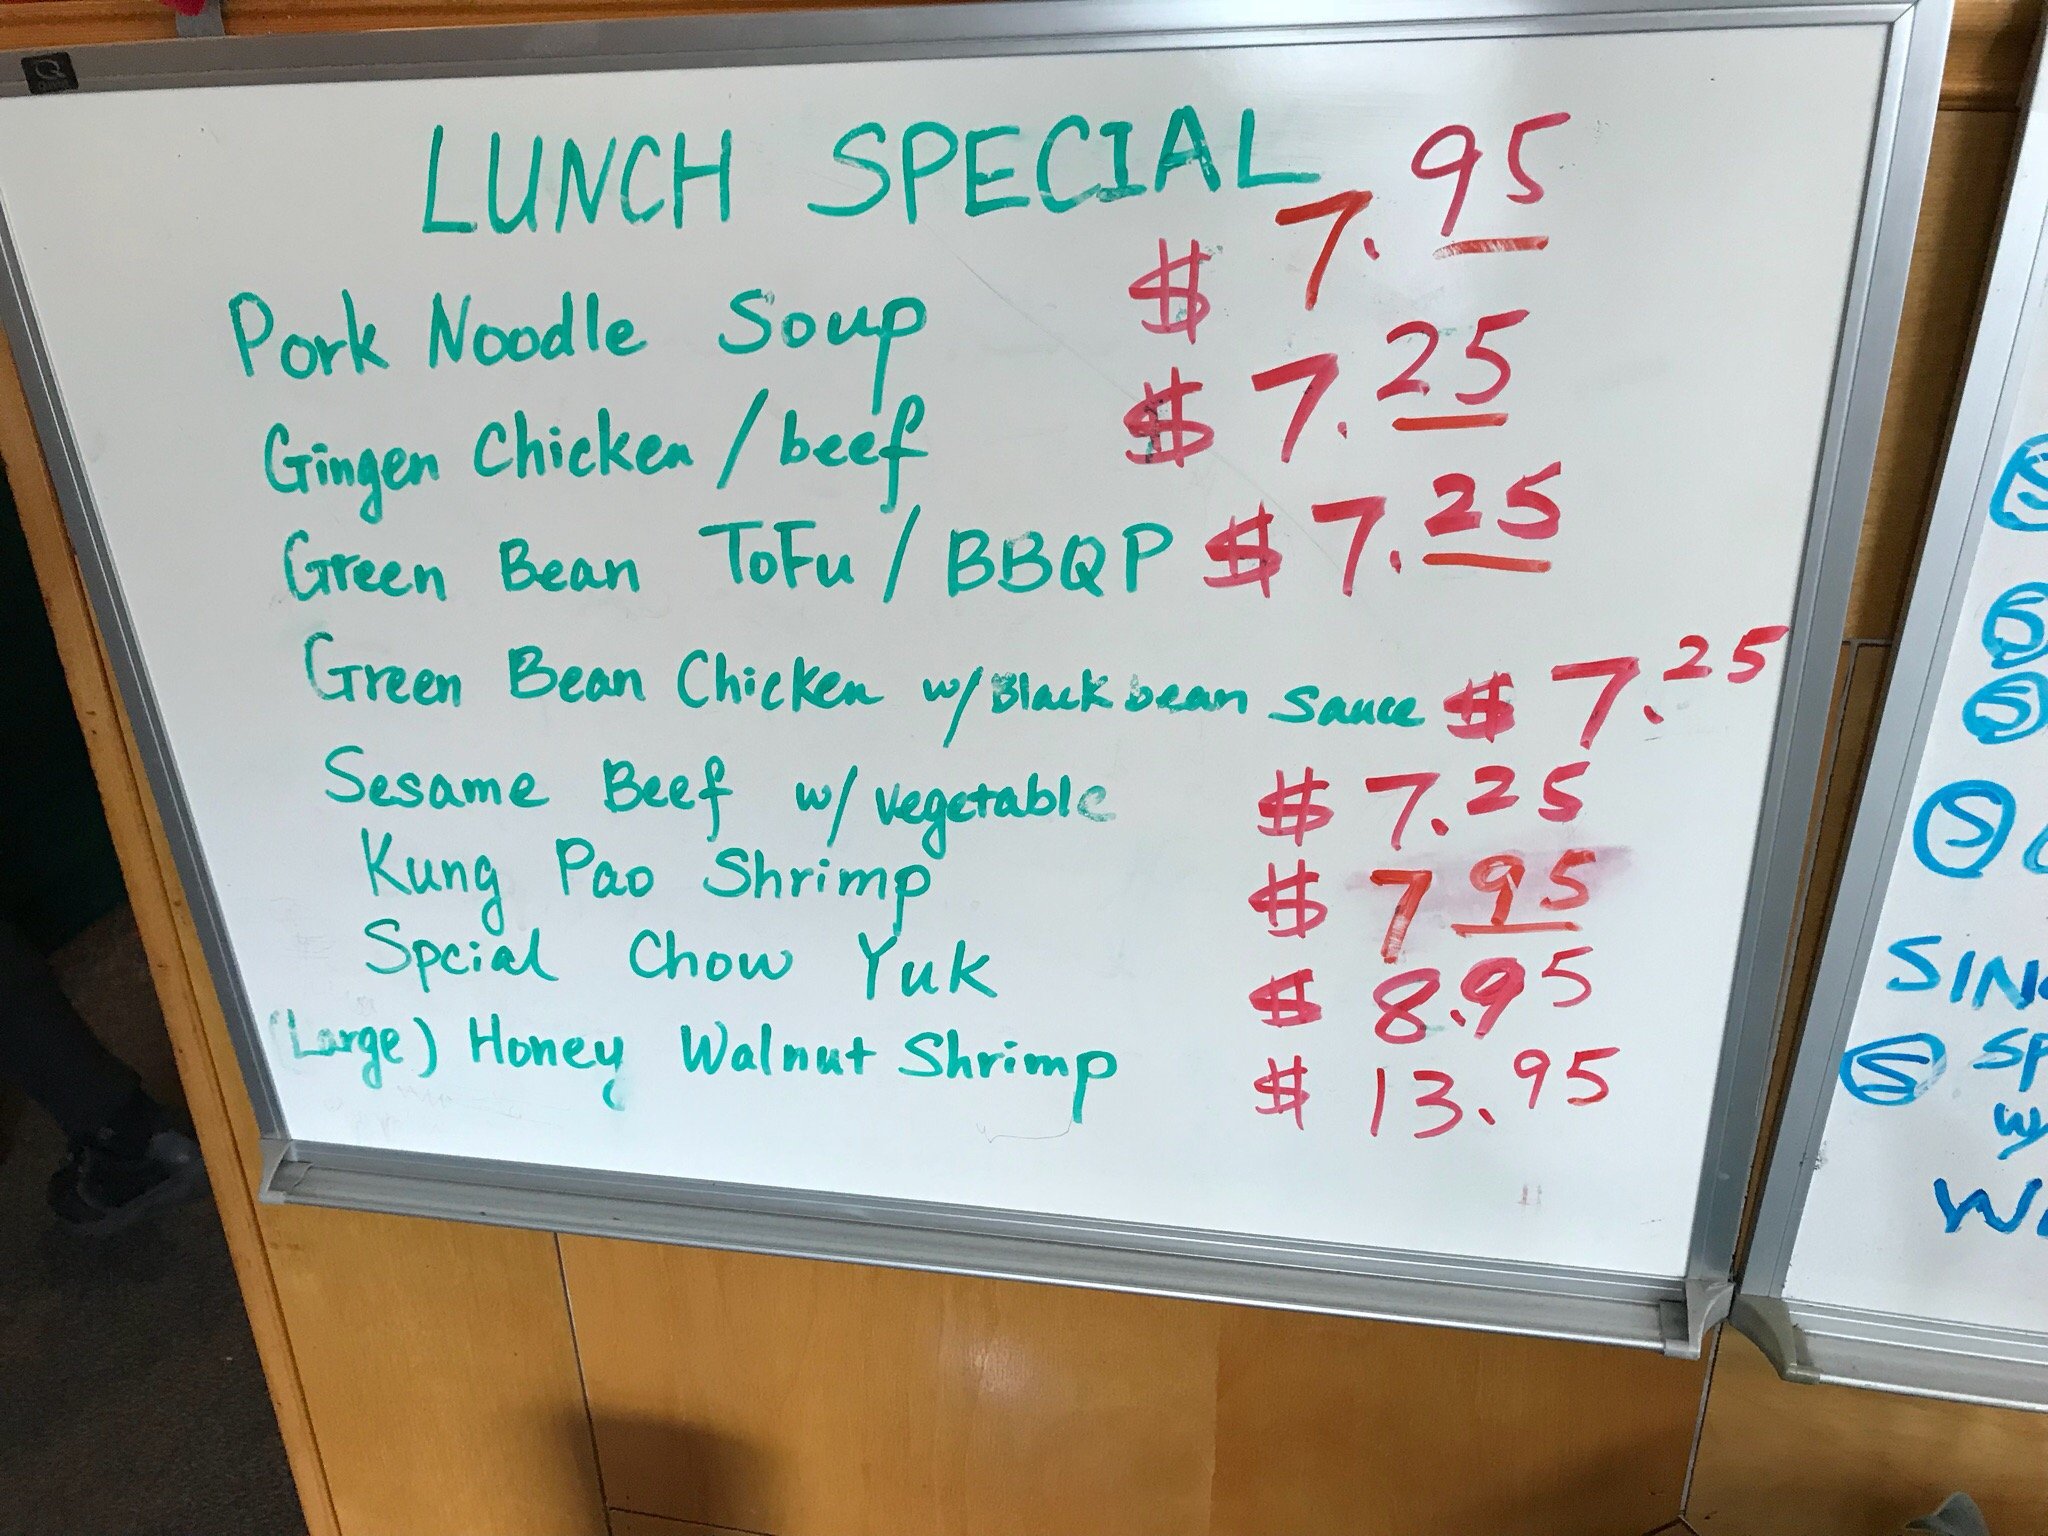 LUNCH SPECIAL
Pork Noodle Soup $7.95
Ginger Chicken / beef $7.25
Green Bean ToFu / BBQP $7.25
Green Bean Chicken w/ Black bean sauce $7.25
Sesame Beef w/ vegetable $7.25
Kung Pao Shrimp $7 95
Spcial Chow Yuk $8.95
(Large) Honey Walnut Shrimp $13.95
S
S
S
S
S